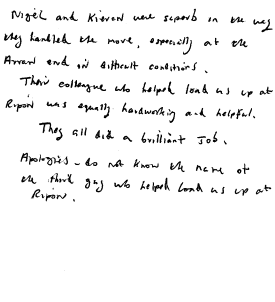 Nigel and Kieran were superb in the way
they handled the move, especially at the
Arran end in difficult conditions.
Their colleague who helped load us up at
Ripon was equally hardworking and helpful.
They all did a brilliant job.
Apologies - do not know the name of
the third guy who helped load us up at
Ripon.